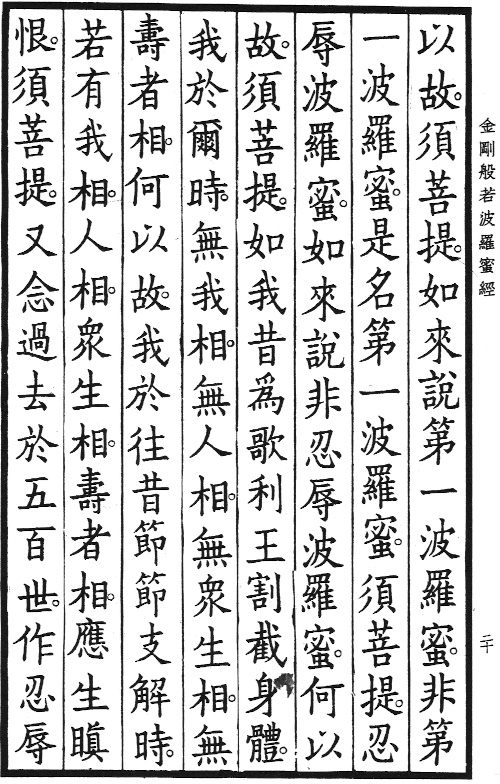 金剛般若波羅蜜經
二十
以故。須菩提。如來說第一波羅蜜。非第
一波羅蜜。是名第一波羅蜜。須菩提。忍
辱波羅蜜。如來說非忍辱波羅蜜。何以
故。須菩提。如我昔爲歌利王割截身體。
我於爾時。無我相。無人相。無衆生相。無
壽者相。何以故。我於往昔節節支解時。
若有我相。人相。衆生相。壽者相。應生瞋
恨。須菩提。又念過去於五百世。作忍辱